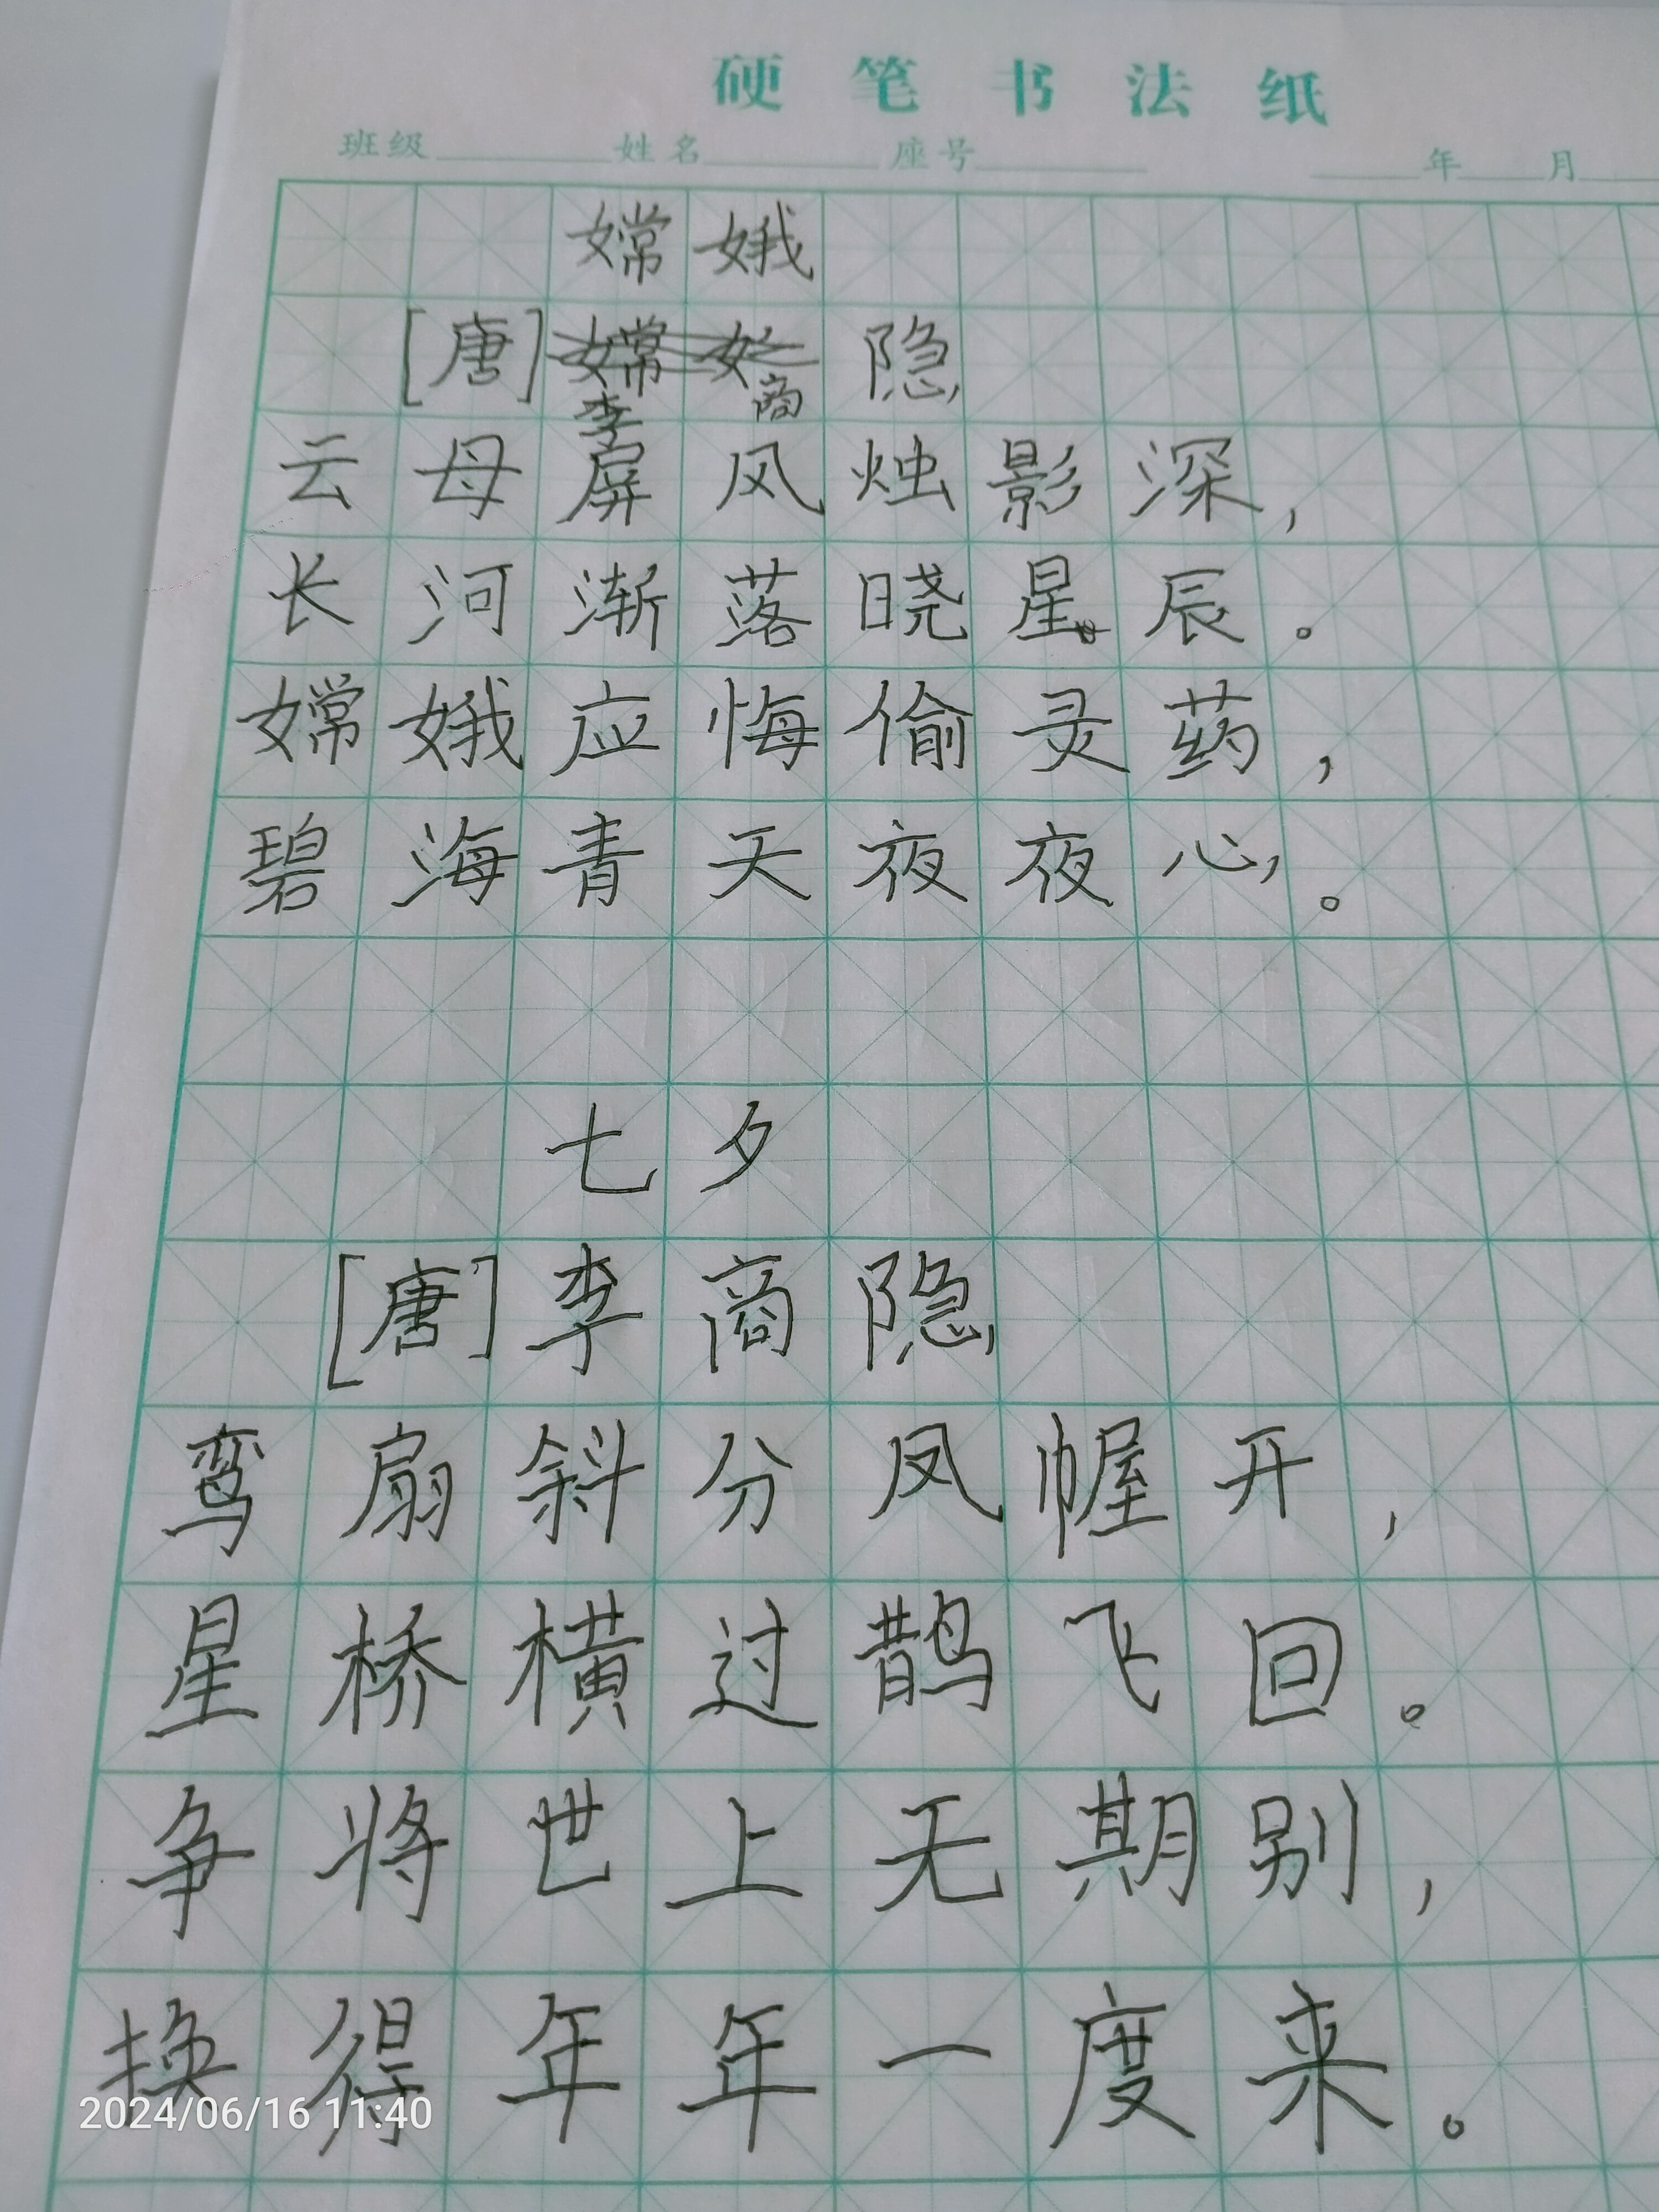 硬笔书法纸
班级 姓名 座号 年 月
嫦娥
[唐]李商隐
云母屏风烛影深，
长河渐落晓星辰。
嫦娥应悔偷灵药，
碧海青天夜夜心。
七夕
[唐]李商隐
鸾扇斜分凤幄开，
星桥横过鹊飞回。
争将世上无期别，
换得年年一度来。
2024/06/16 11:40